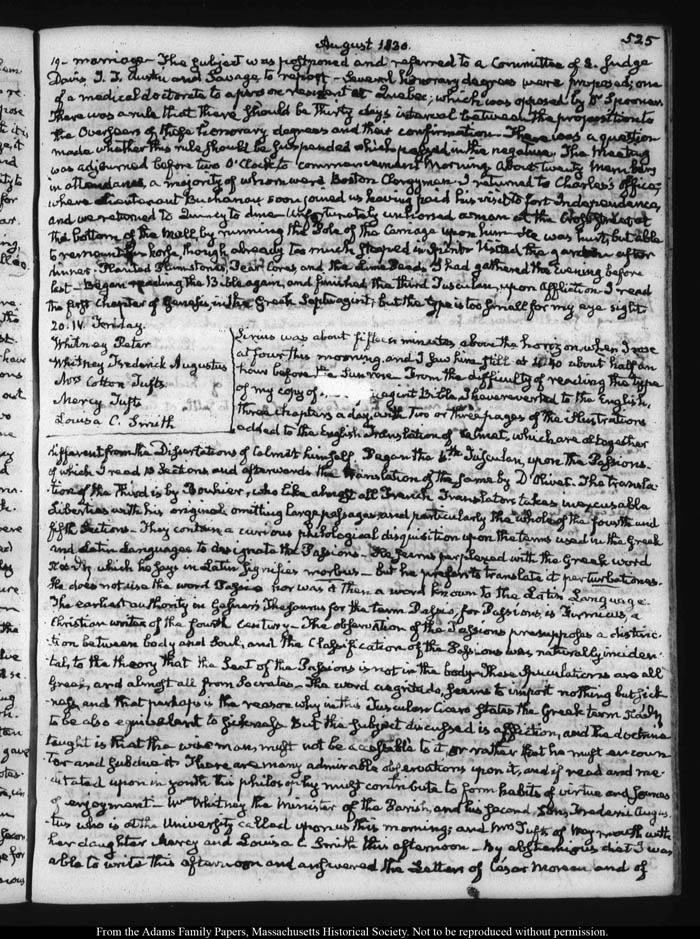 August 1830.
525
19— marriage— The subject was postponed and referred to a Committee of 2. Judge
Davis, J. T. Austin and Savage, to report— Several honorary degrees were proposed; one
of a medical doctorate to a person resident at Quebec; which was opposed by Dr Spooner.
There was a rule that there should be thirty days interval between the proposition to
the Overseers of these honorary degrees and their confirmation— There was a question
made whether this rule should be suspended which passed in the negative. The Meeting
was adjourned before two O'Clock to commencement morning. About twenty Members
in attendance, a majority of whom were Boston Clergymen. I returned to Charles's office;
where Lieutenant Buchanan soon joined us having paid his visit to fort Independence,
and we returned to Quincy to dine. Unfortunately unhorsed a man at the
the bottom of the Mill, by running the Pole of the Carriage upon him— He was hurt, but able
to remount his horse, though already too much Visited the garden after
dinner. Planted Plumstones, Pear Cores, and the Lime Seeds I had gathered the Evening before
last— Began reading the Bible again, and finished the third Tusculan, upon Affliction. I read
the first Chapter of Genesis, in the Greek Septuagint; but the type is too small for my eye sight.
20. IV. Friday.
Whitney Peter
Whitney Frederick Augustus
Mrs Cotton Tufts
Mercy Tufts
Louisa C. Smith
Sirius was about fifteen minutes above the horizon when I rose
at four this morning, and I saw him still at 4:40 about half an
hour before the Sun rose— From the difficulty of reading the type
of my copy of Bible, I have reverted to the English,
three chapters a day, with two or three pages of the illustrations
added to the English translation of Calmet, which are altogether
different from the Dissertations of Calmet himself. Began the 4th Tusculan, upon the Passions—
of which I read 15 Sections and afterwards the translation of the same by D'Olivet. The transla-
tion of the Third is by Bouhier, who like almost all French Translators takes inexcusable
liberties with his original, omitting large passages and particularly the whole of the fourth and
fifth Sections— They contain a curious philological disquisition upon the terms used in the Greek
and Latin languages to designate the Passions— He seems perplexed with the Greek word
which he says in Latin signifies morbus— but he prefers to translate it perturbationes.
He does not use the word Passio nor was it then a word known to the Latin Language.
The earliest authority in Gesner's Thesaurus for the term Passio, for Passions, is Firmicus, a
Christian writer of the fourth Century— The observation of the Passions presupposes a distinc-
tion between body and Soul, and the Classification of the Passions was naturally inciden-
tal, to the theory that the Seat of the Passions is not in the body. These Speculations are all
Greek, and almost all from Socrates— The word aegritudo, seems to import nothing but sick-
ness, and that perhaps is the reason why in this Tusculan Cicero states the Greek term
to be also equivalent to sickness But the subject discussed is affliction, and the doctrine
taught is that the wise man, must not be accessible to it or rather that he must encoun-
ter and subdue it. There are many admirable observations upon it, and if read and me-
ditated upon in youth this philosophy must contribute to form habits of virtue and sources
of enjoyment— Mr Whitney the Minister of the Parish and his second Son, Frederic Augus-
tus who is at the University called upon us this morning; and Mrs Tufts of Weymouth with
her daughter Mercy and Louisa C. Smith this afternoon— By abstemious diet I was
able to write this afternoon and answered the Letters of César Moreau and of
From the Adams Family Papers, Massachusetts Historical Society. Not to be reproduced without permission.